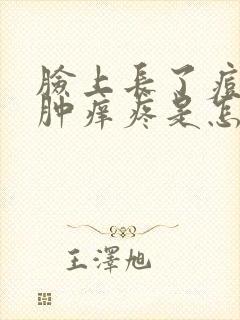 臉上長了痘
肿痒疼是怎
王澤旭